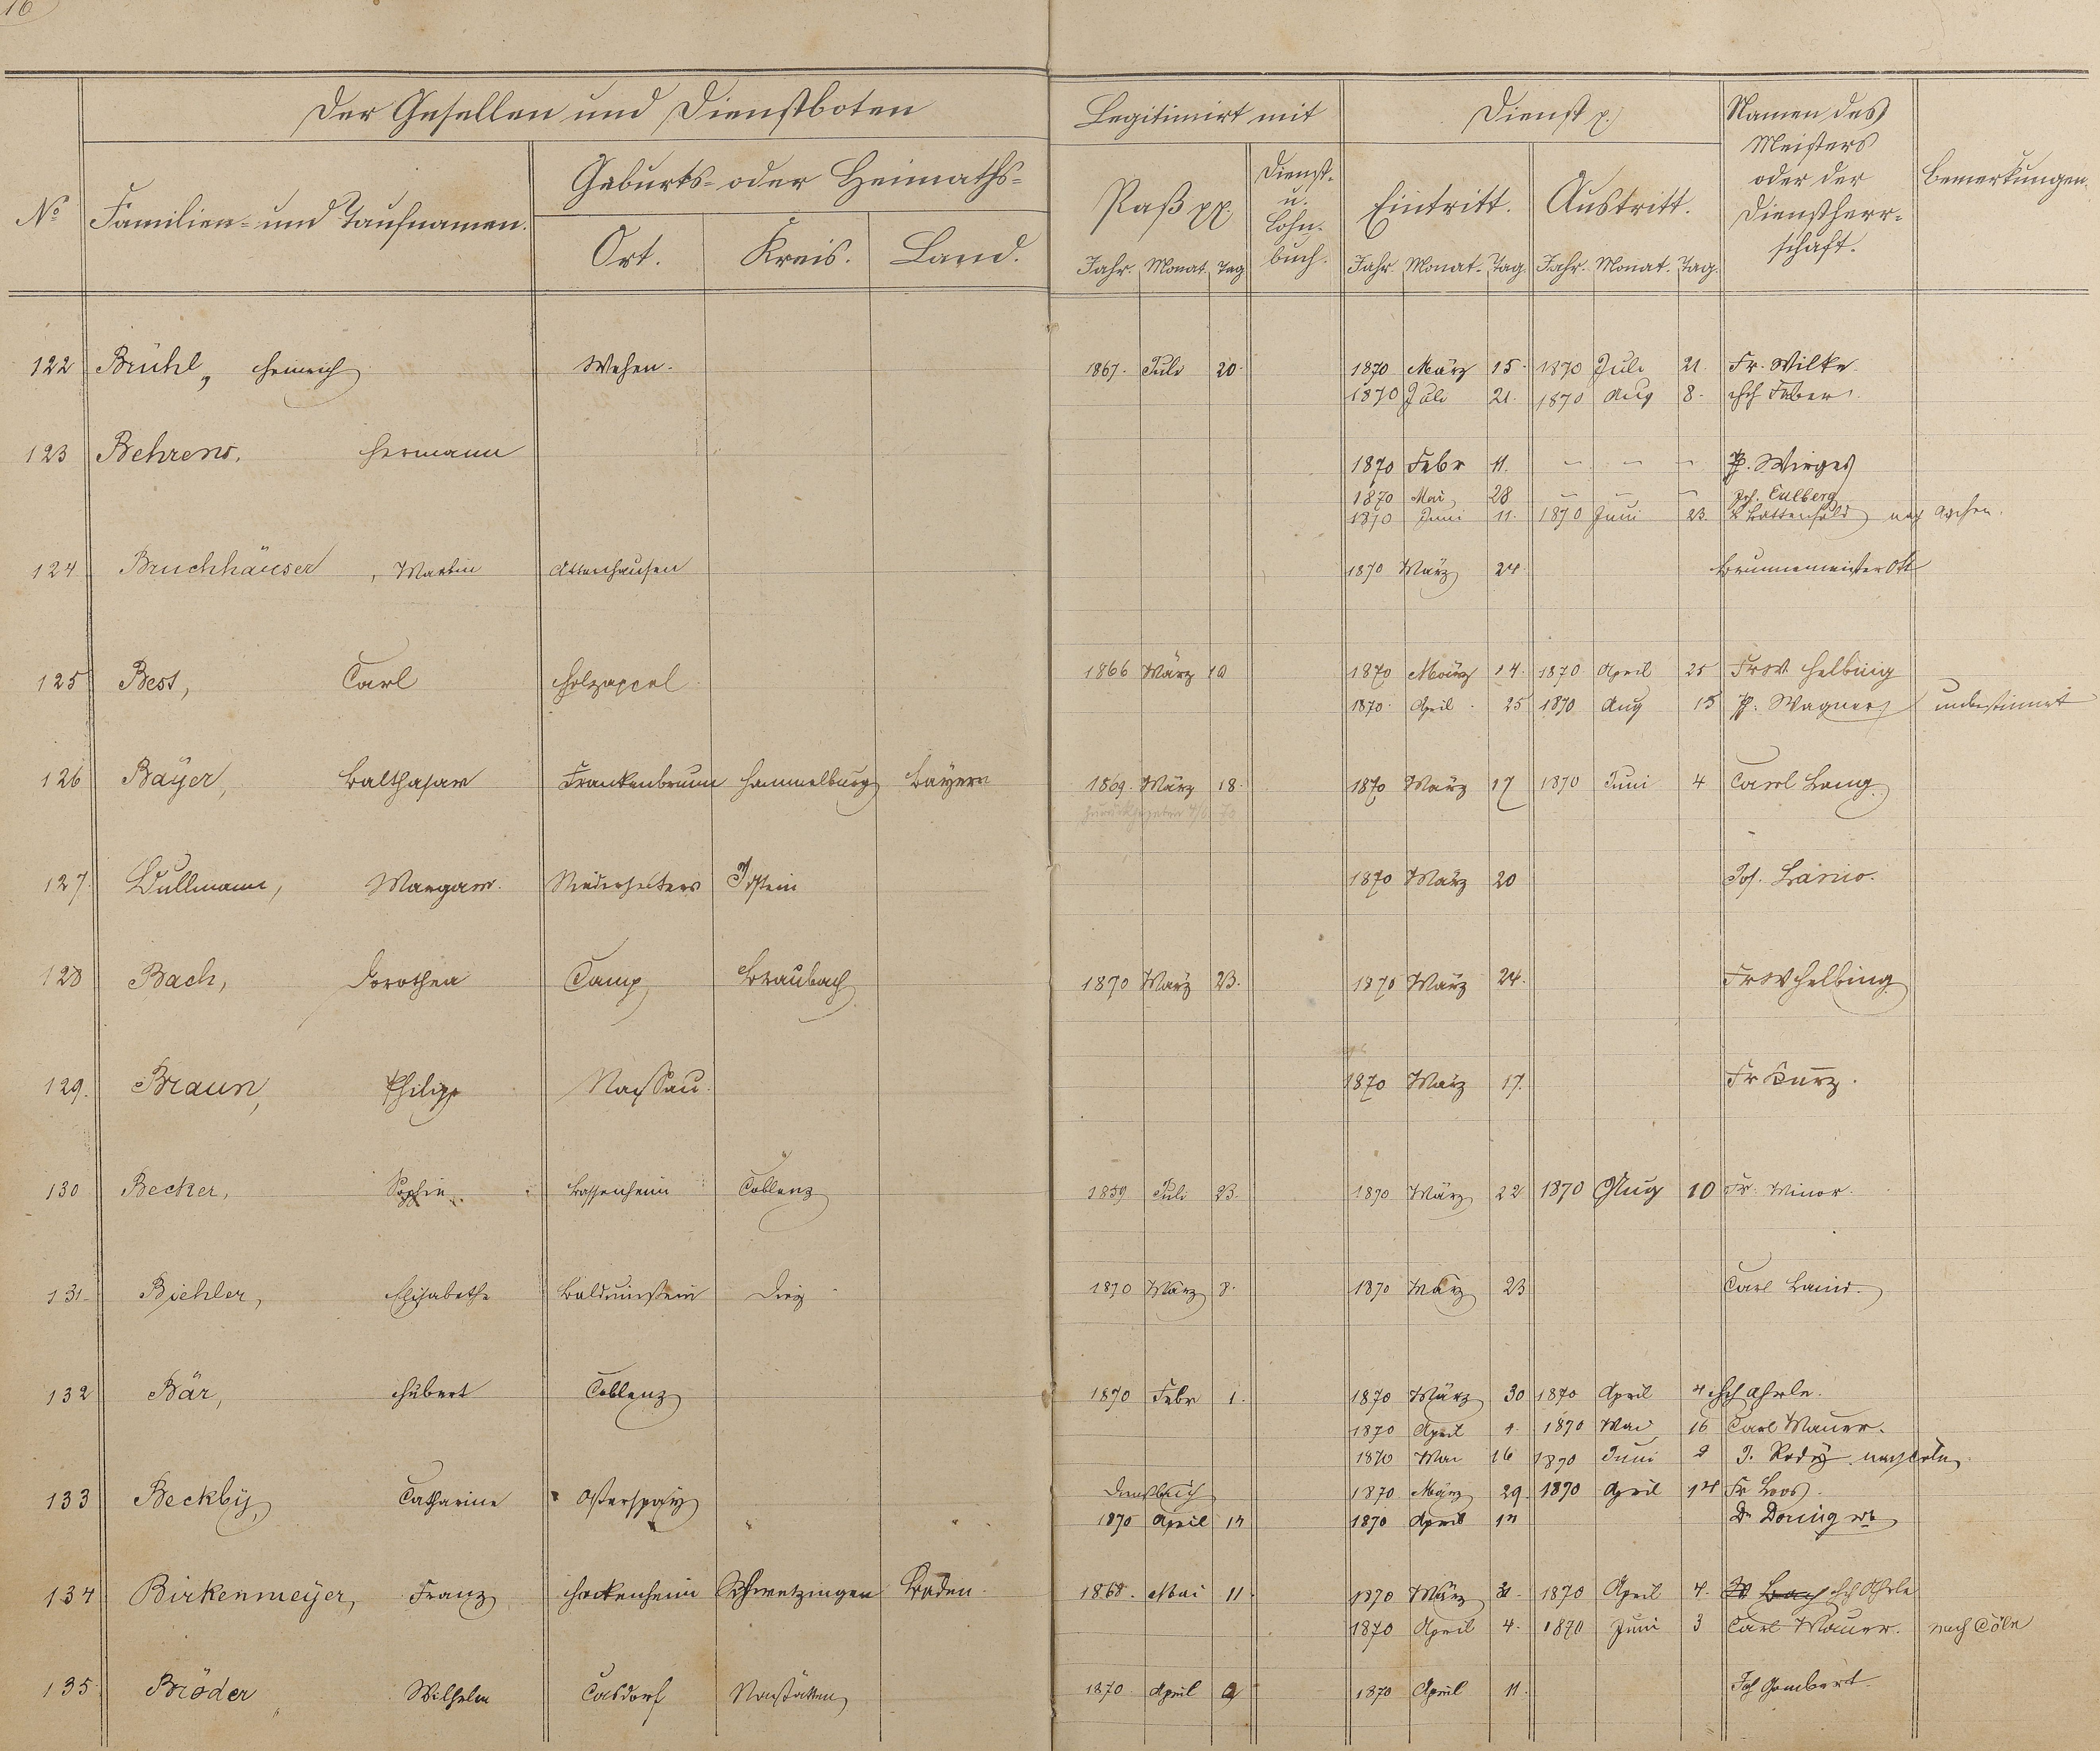 16
Der Gesellen und Dienstboten
Legitimirt mit
Dienst p.
Namen des Meisters oder der Dienstherrschaft.
Bemerkungen.
No
Familien- und Taufnamen.
Geburts- oder Heimaths-
Ort. Kreis. Land.
Paß pp.
Dienst- u. Lohn- buch.
Eintritt. Austritt.
Jahr. Monat. Tag. Jahr. Monat. Tag. Jahr. Monat. Tag.
122 Brühl, Heinrich Wehen. 1867. Juli 20. 1870 März 15. 1870 Juli 21. Fr. Wilke.
1870 Juli 21. 1870 Aug 8. Hch Faber.
123 Behrens, Hermann 1870 Febr 11. — — — P. Wirges
1870 Mai 28 — — — Jos. Eulberg
1870 Juni 11. 1870 Juni 23. Battenfeld nach Aachen.
124 Bruchhäuser, Martin Attenhausen 1870 März 24. Brunnenmeister Ott
125 Best, Carl Holzappel. 1866 März 10 1870 März 14. 1870 April 25 FrW. Helbing
1870. April. 25 1870 Aug 15 P. Wagner unbestimmt
126 Bayer, Balthasar Frankenbrunn Hammelburg Bayern 1869. März 18. 1870 März 17 1870 Juni 4 Carl Lang.
127. Bullmann, Margar. Niederselters Idstein 1870 März 20 Jos.
128 Bach, Dorothea Camp Braubach 1870 März 23. 1870 März 24. FrW Helbing
129. Braun, Philipp Nassau. 1870 März 17. Fr Kurz.
130 Becker, Sophie. Bassenheim Coblenz 1859 Juli 23. 1870 März 22 1870 Aug 10 Fr. Minor.
131. Biehler, Elisabethe Balduinstein Diez 1870 März 8. 1870 März 23 Carl
132 Bär, Hubert Coblenz 1870 Febr 1. 1870 März 30 1870 April 4 Hch Ohrle.
1870 April 4. 1870 Mai 16 Carl Mauer.
1870 Mai 16 1870 Juni 2 J. nach Cöln
133 Beckby, Catharine Osterspay Dienstbuch 1870 März 29. 1870 April 14 Fr Loos.
1870 April 14 1870 April 14 Dr Döring
134 Birkenmeyer, Franz Hockenheim Schwetzingen Baden. 1868. Mai 11. 1870 März 1870 April 4. Hch Ohrle
1870 April 4. 1870 Juni 3 Carl Mauer. nach Cöln
135. Bröder, Wilhelm Casdorf Nastätten 1870. April 9 1870 April 11. Jos Gombert.